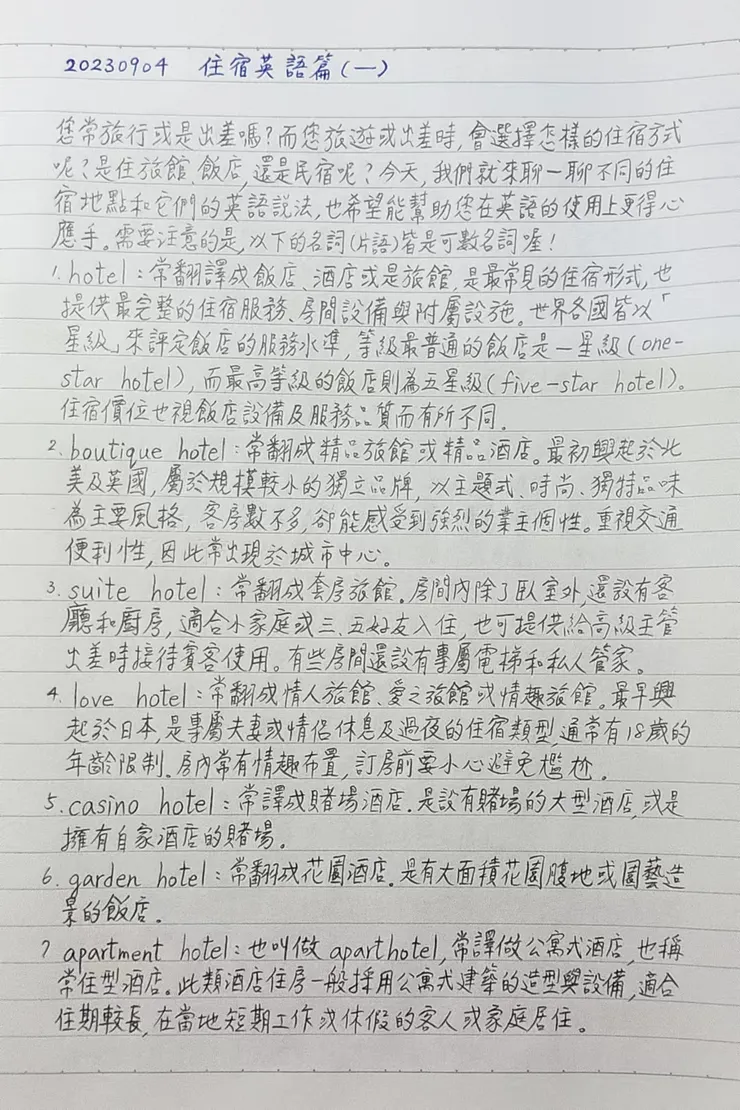 20230904 住宿英語篇(一)
您常旅行或是出差嗎?而您旅遊或出差時,會選擇怎樣的住宿方式
呢?是住旅館、飯店,還是民宿呢?今天,我們就來聊一聊不同的住
宿地點和它們的英語說法,也希望能幫助您在英語的使用上更得心
應手。需要注意的是,以下的名詞(片語)皆是可數名詞喔!
1. hotel:常翻譯成飯店、酒店或是旅館,是最常見的住宿形式,也
提供最完整的住宿服務、房間設備與附屬設施。世界各國皆以「
星級」來評定飯店的服務水準,等級最普通的飯店是一星級(one-
star hotel),而最高等級的飯店則為五星級(five-star hotel)。
住宿價位也視飯店設備及服務品質而有所不同.
2. boutique hotel:常翻成精品旅館或精品酒店。最初興起於北
美及英國,屬於規模較小的獨立品牌,以主題式、時尚、獨特品味
為主要風格,客房數不多,卻能感受到強烈的業主個性。重視交通
便利性,因此常出現於城市中心。
3. suite hotel:常翻成套房旅館.房間內除了臥室外,還設有客
廳和廚房,適合小家庭或三、五好友入住,也可提供給高級主管
出差時接待賓客使用。有些房間還設有專屬電梯和私人管家。
4. love hotel:常翻成情人旅館、愛之旅館或情趣旅館.最早興
起於日本,是專屬夫妻或情侶休息及過夜的住宿類型,通常有18歲的
年齡限制.房內常有情趣布置,訂房前要小心避免尷尬。
5. casino hotel:常譯成賭場酒店.是設有賭場的大型酒店,或是
擁有自家酒店的賭場。
6. garden hotel:常翻成花園酒店.是有大面積花園腹地或園藝造
景的飯店.
7 apartment hotel:也叫做 aparthotel,常譯做公寓式酒店,也稱
常住型酒店。此類酒店住房一般採用公寓式建築的造型與設備,適合
住期較長,在當地短期工作或休假的客人或家庭居住。